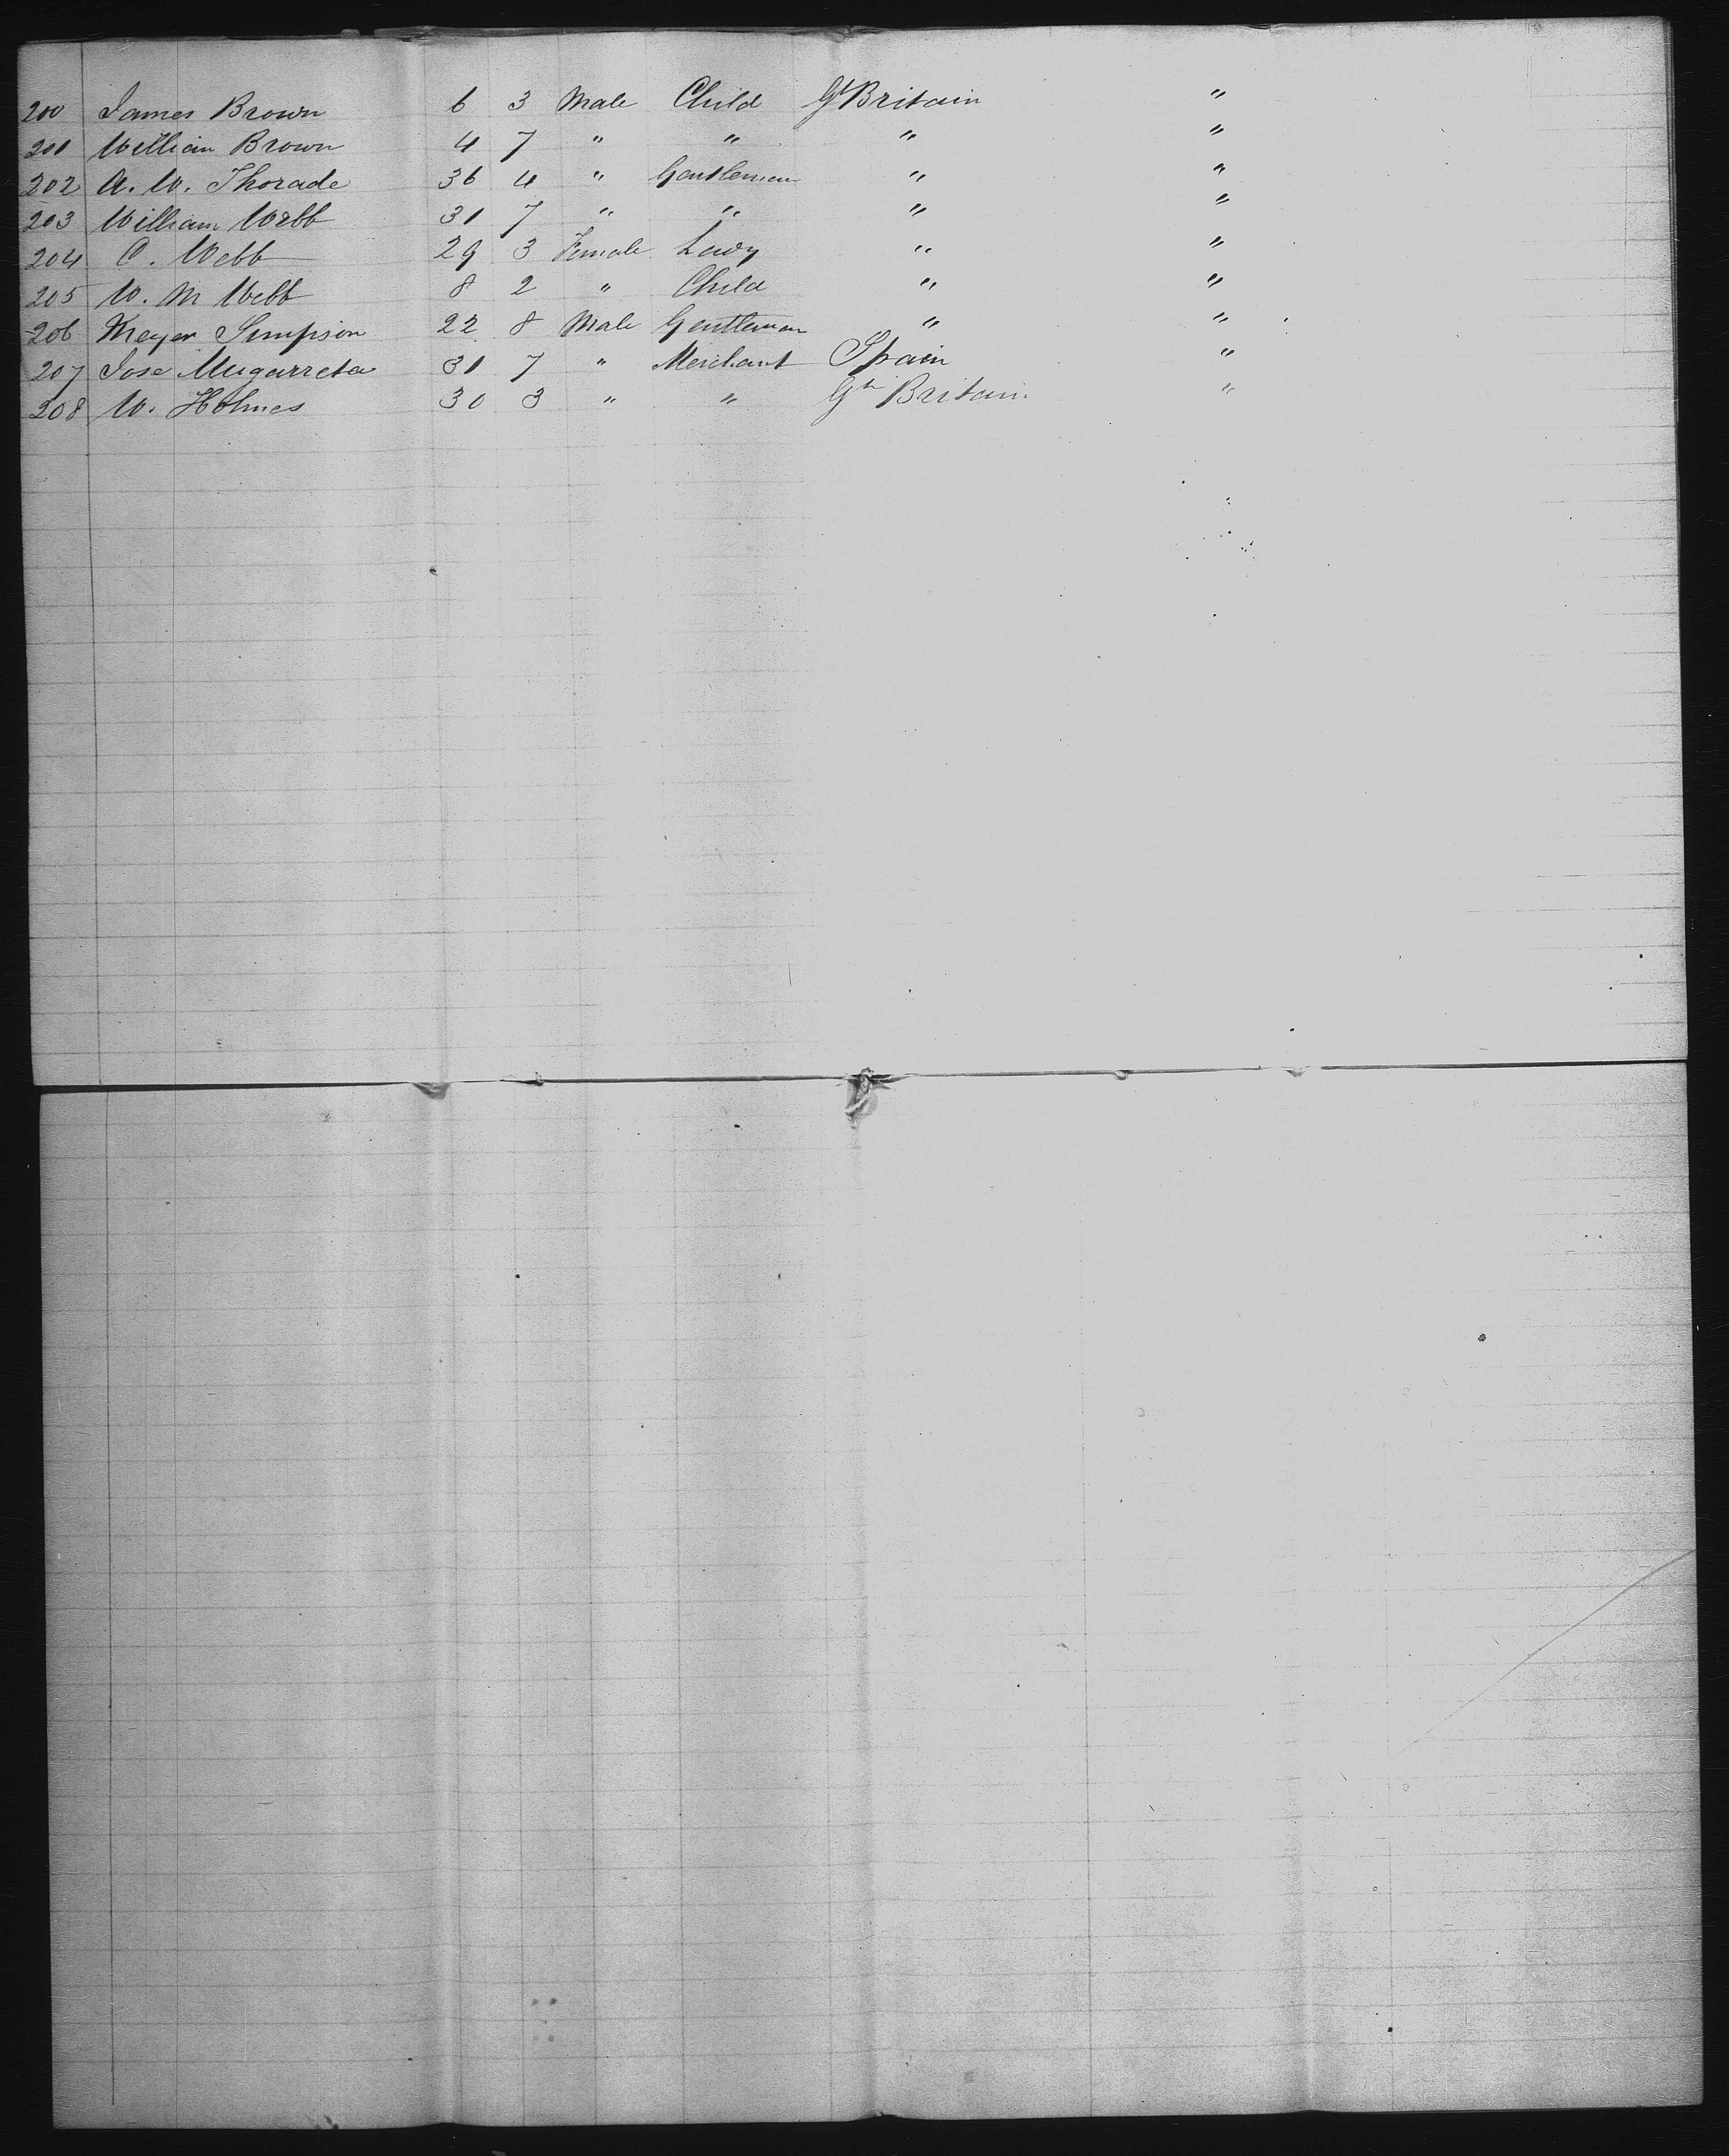 200 James Brown 6 3 Male Child Gt Britain "
201 William Brown 4 7 " " " "
202 A. W. Thorade 36 4 " Gentleman " "
203 William Webb 31 7 " " " "
204 C. Webb 29 3 Female Lady " "
205 W. M Webb 8 2 " Child " "
206 Meyer Simpson 22 8 Male Gentleman " "
207 Jose Mugarreta 31 7 " Merchant Spain "
208 W. Holmes 30 3 " " Gt Britain "